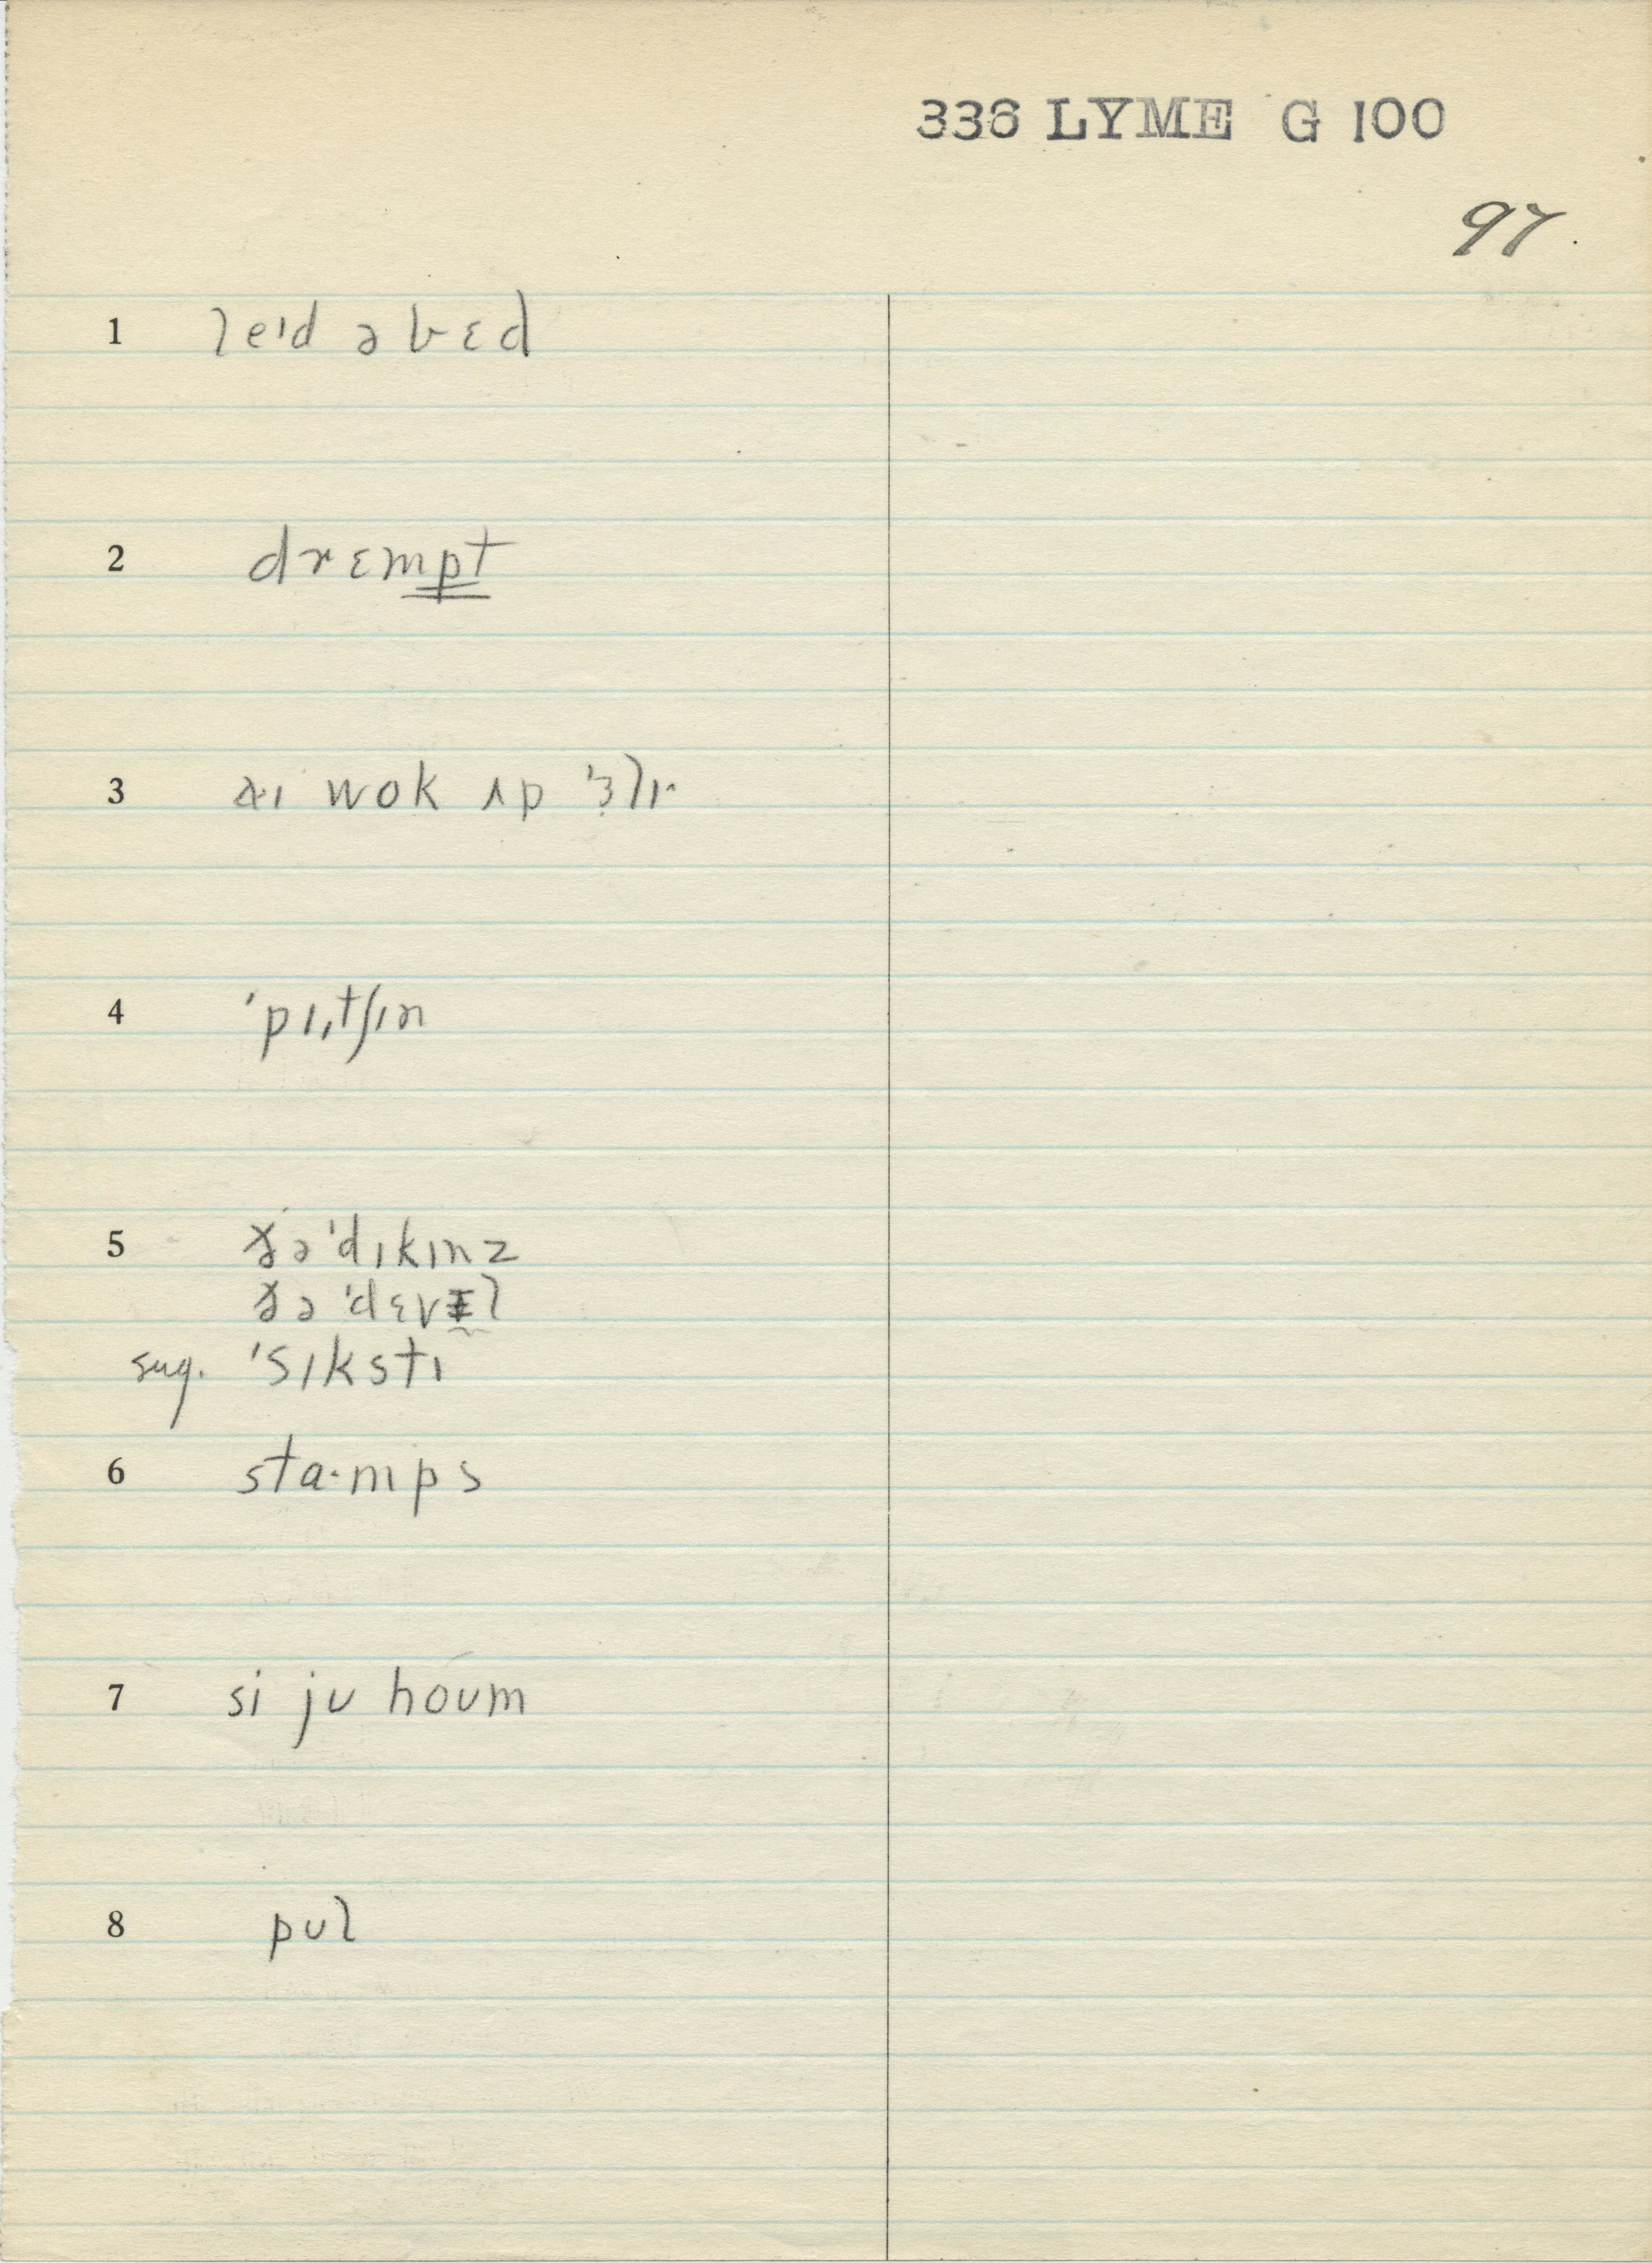 336 LYME G 100
97.
1 leɪd ə bɛd
2 drɛmpt
3 aɪ wok ʌp ˈɜlɪ
4 ˈpɪˌtʃɪn
5 ðə ˈdɪkɪnz
ðə ˈdɛvɪl
sug. ˈsɪkstɪ
6 sta·mps
7 si jʊ hoʊm
8 pʊl